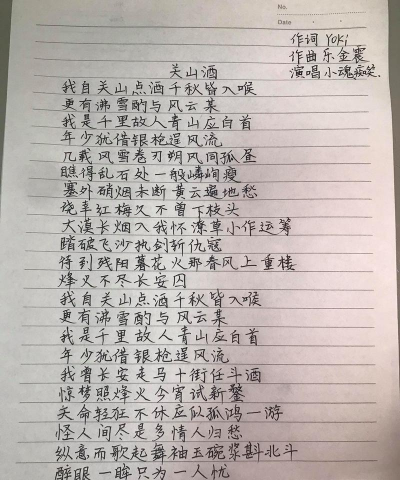 No.
Date
作词 Yoki
作曲 乐金震
演唱 小魂痴笑
关山酒
我自关山点酒千秋皆入喉
更有沸雪酌与风云某
我是千里故人青山应白首
年少犹借银枪逞风流
几载风雪卷刃朔风同孤垦
瞧得乱石处一般嶙峋瘦
塞外硝烟未断黄云遍地愁
饶辜红梅久不曾下枝头
大漠长烟入我怀潦草小作运筹
踏破飞沙执剑斩仇寇
待到残阳暮花火那春风上重楼
烽火不尽长安囚
我自关山点酒千秋皆入喉
更有沸雪酌与风云某
我是千里故人青山应白首
年少犹借银枪逞风流
我曾长安走马十街任斗酒
惊梦照烽火今宵试新鍪
天命轻狂不休应似孤鸿一游
怪人间尽是多情人归愁
纵意而歌起舞袖五碗浆斟北斗
醉眼一眸只为一人忧